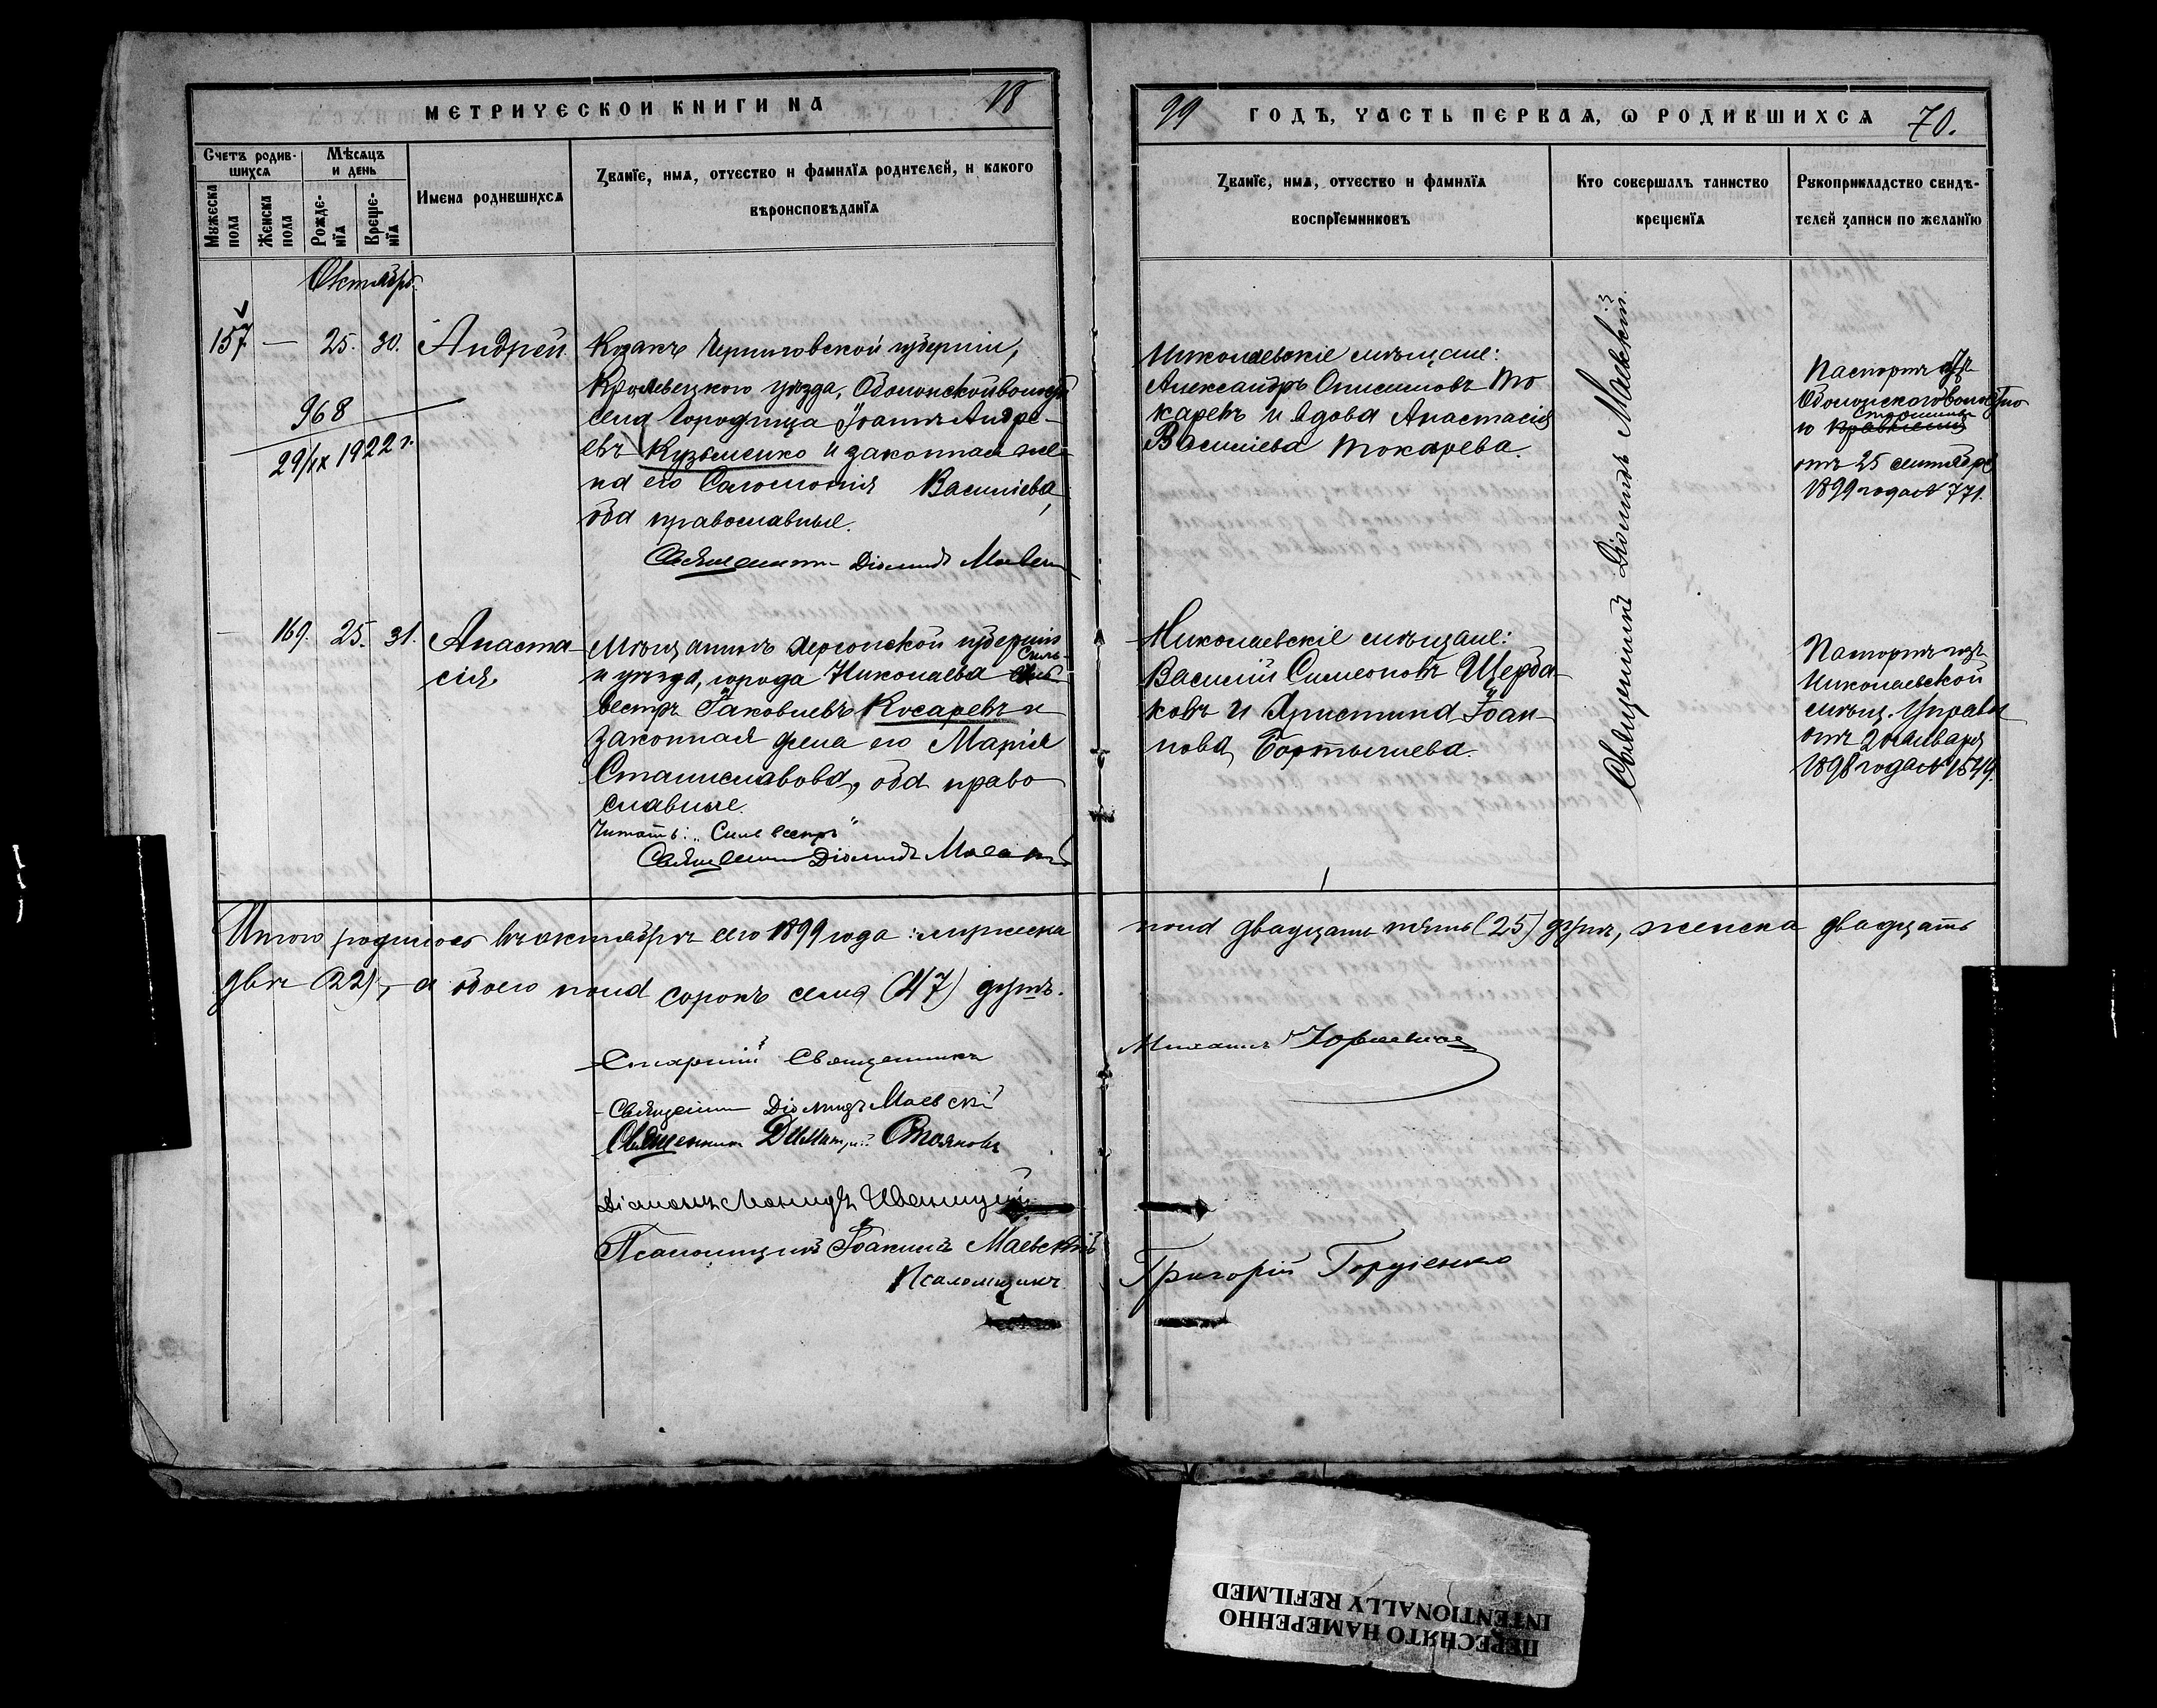 МЕТРИЧЕСКОЙ КНИГИ НА 18
99 ГОДЪ, ЧАСТЬ ПЕРВАЯ, Ѡ РОДИВШИХСѦ 70.
Счетъ родив-
шихсѧ
Мѣсяцъ
и день
Мужеска
пола
Женска
пола
Рожде-
нїѧ
Креще-
нїѧ
Имена родившихсѧ
Званїе, имѧ, отчество и фамилїѧ родителей, и какого
вѣроисповѣданїѧ
Званїе, имѧ, отчество и фамилїѧ
воспрїемниковъ
Кто совершалъ таинство
крещенїѧ
Рукоприкладство свидѣ-
телей записи по желанїю
Октябрь.
157. — 25. 30. Андрей.
968
29/IX 1922 г.
Козакъ Черниговской губерніи,
Кролевецкаго уѣзда, Оболонской волости
села Городища Іоаннъ Андре-
евъ Кузьменко и законная же-
на его Саломонія Васильева,
оба православные.
Священникъ Діомидъ Маевскій
Николаевскіе мѣщане:
Александръ Онисимовъ То
каревъ и вдова Анастасія
Васильева Токарева.
Священникъ Діомидъ Маевскій.
Паспортъ изъ
Оболонскаго волостно
Старшины
го правленія
отъ 25 сентября
1899 года № 771.
— 169. 25. 31. Анаста
сія.
Мѣщанинъ Херсонской губерніи
Силь-
и уѣзда, города Николаева
вестръ Іаковлевъ Косаревъ и
законная жена его Марія
Станиславова, оба право
славные.
Читать: „Сильвестръ"
Священникъ Діомидъ Маевскій
Николаевскіе мѣщане:
Василій Симеоновъ Щерба-
ковъ и Христина Іоан-
нова
Паспортъ изъ
Николаевской
мѣщ. Управы
отъ 20 января
1898 года № 1549.
Итого родилось въ октябрѣ сего 1899 года: мужеска
пола двадцать пять (25) душъ, женска двадцать
двѣ (22), а обоего пола сорокъ семь (47) душъ.
Старшій Священникъ
Михаилъ
Священникъ Діомидъ Маевскій
Священникъ Димитрій Стояновъ
Діаконъ Леонидъ Иваницкій
Псаломщикъ Іоакимъ Маевскій
Псаломщикъ
Григорій
ПЕРЕСНЯТО НАМЕРЕННО
INTENTIONALLY REFILMED